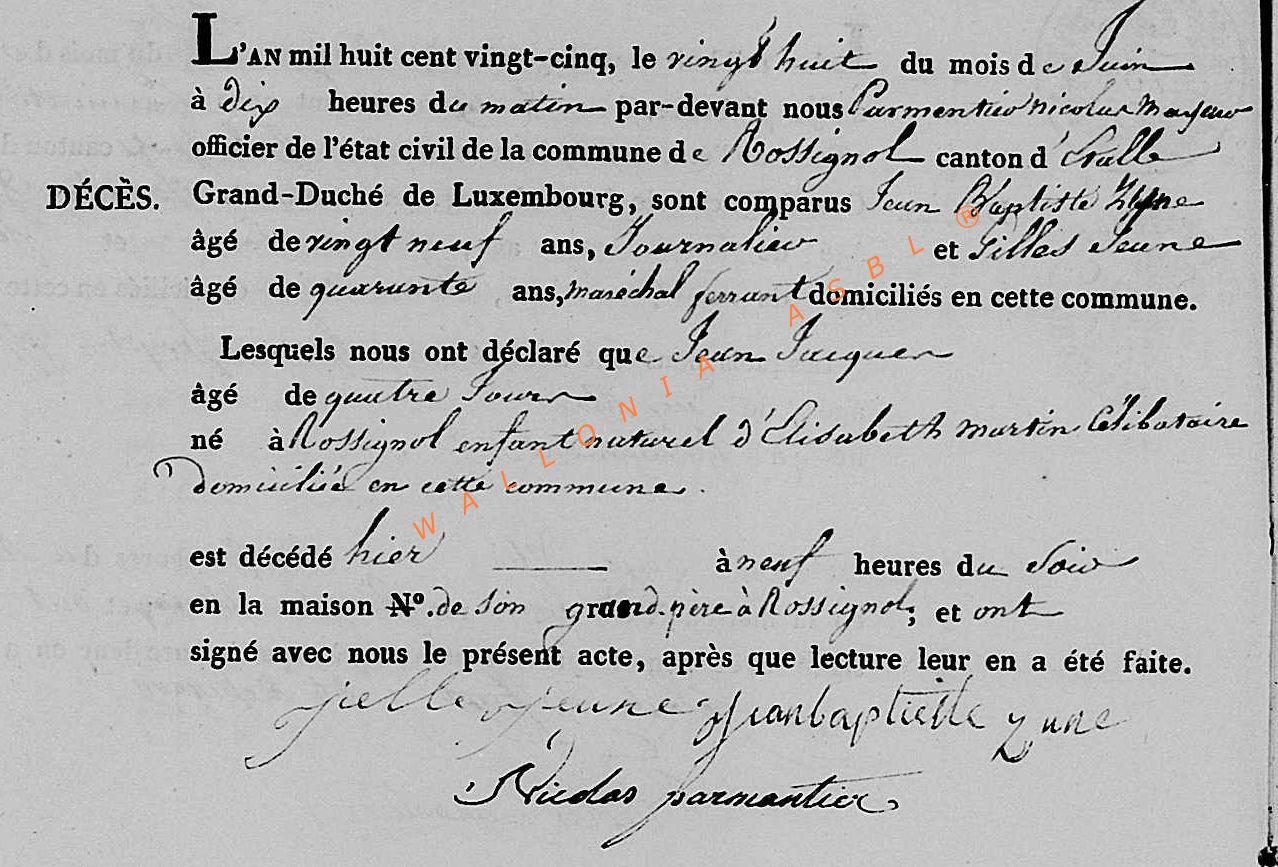 L'AN mil huit cent vingt-cinq, le vingt huit du mois de Juin
à dix heures du matin par-devant nous Parmentier nicolas Mayeur
officier de l'état civil de la commune de Rossignol canton d'Etalle
DÉCÈS. Grand-Duché de Luxembourg, sont comparus Jean Baptiste Zune
âgé de vingt neuf ans, Journalier et Gilles Jeune
âgé de quarante ans, maréchal ferrant domiciliés en cette commune.
Lesquels nous ont déclaré que Jean Jacques
âgé de quatre Jours
né à Rossignol enfant naturel d'Elisabeth martin Célibataire
Domiciliée en cette commune.
est décédé hier à neuf heures du Soir
en la maison N°. de son grand père à Rossignol; et ont
signé avec nous le présent acte, après que lecture leur en a été faite.
jille jeune jean baptiette zune
Nicolas parmentier
WALLONIA ASBL ®